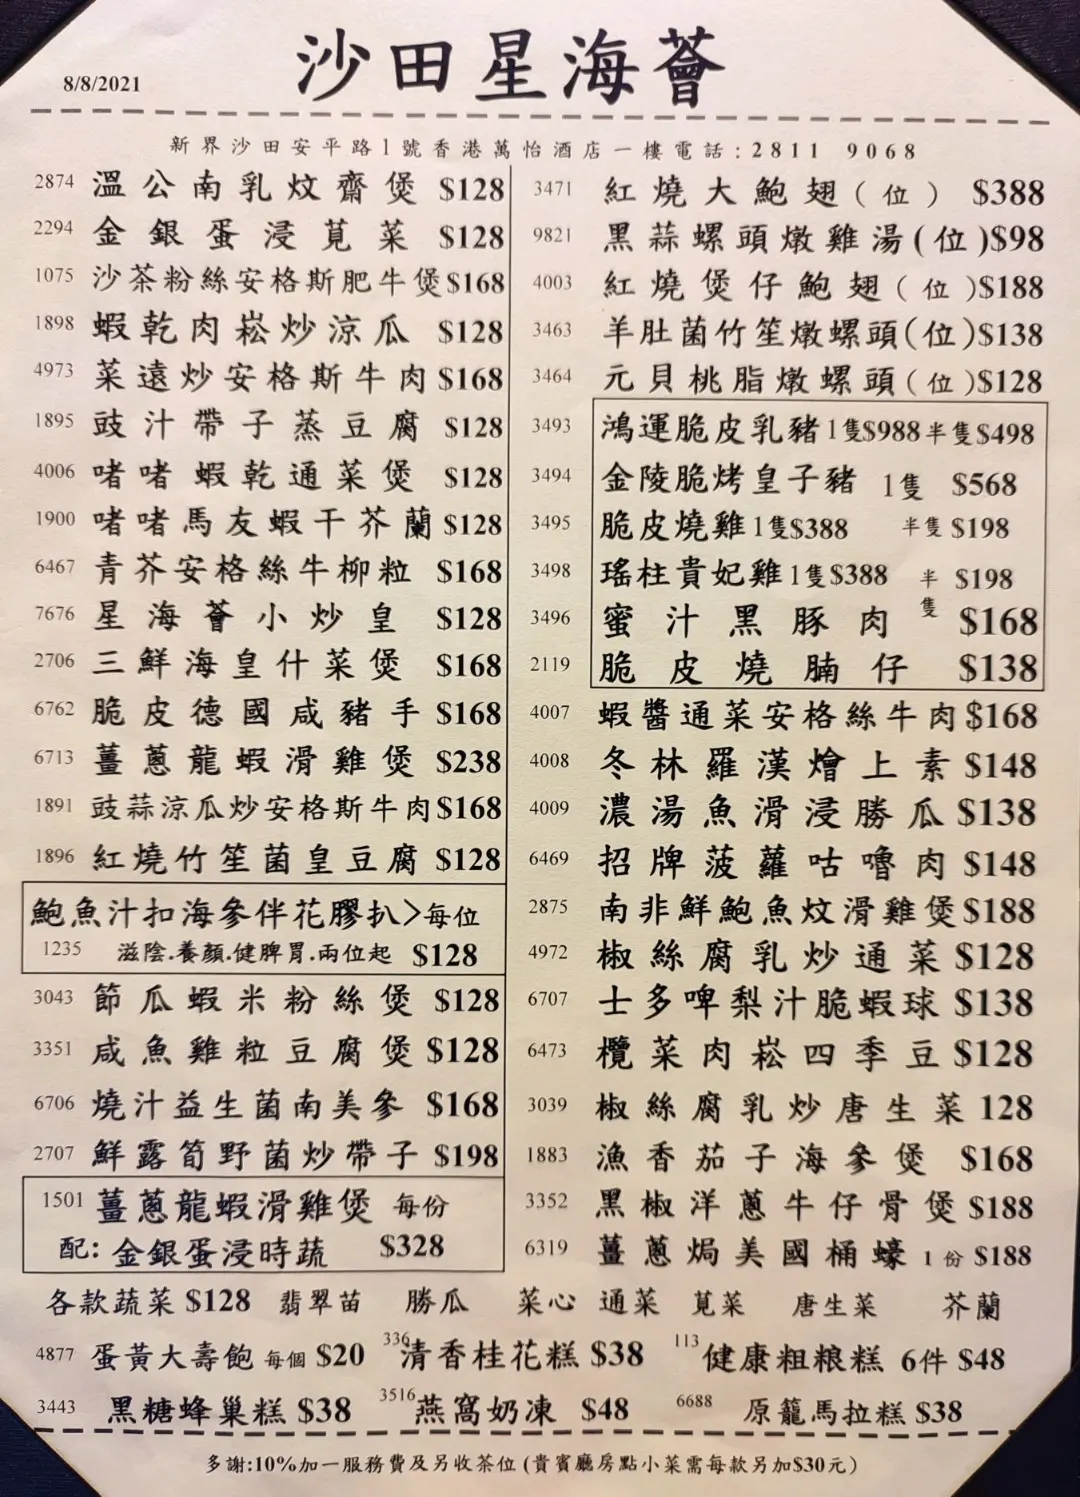 沙田星海薈
8/8/2021
新界沙田安平路1號香港萬怡酒店一樓電話:2811 9068
2874 溫公南乳炆齋煲 $128
2294 金銀蛋浸莧菜 $128
1075 沙茶粉絲安格斯肥牛煲 $168
1898 蝦乾肉崧炒涼瓜 $128
4973 菜遠炒安格斯牛肉 $168
1895 豉汁帶子蒸豆腐 $128
4006 啫啫蝦乾通菜煲 $128
1900 啫啫馬友蝦干芥蘭 $128
6467 青芥安格絲牛柳粒 $168
7676 星海薈小炒皇 $128
2706 三鮮海皇什菜煲 $168
6762 脆皮德國咸豬手 $168
6713 薑蔥龍蝦滑雞煲 $238
1891 豉蒜涼瓜炒安格斯牛肉 $168
1896 紅燒竹笙菌皇豆腐 $128
鮑魚汁扣海參伴花膠扒>每位
1235 滋陰.養顏.健脾胃.兩位起 $128
3043 節瓜蝦米粉絲煲 $128
3351 咸魚雞粒豆腐煲 $128
6706 燒汁益生菌南美參 $168
2707 鮮露筍野菌炒帶子 $198
1501 薑蔥龍蝦滑雞煲 每份
配: 金銀蛋浸時蔬 $328
3471 紅燒大鮑翅(位) $388
9821 黑蒜螺頭燉雞湯(位)$98
4003 紅燒煲仔鮑翅(位)$188
3463 羊肚菌竹笙燉螺頭(位)$138
3464 元貝桃脂燉螺頭(位)$128
3493 鴻運脆皮乳豬1隻$988半隻$498
3494 金陵脆烤皇子豬 1隻 $568
3495 脆皮燒雞1隻$388 半隻$198
3498 瑤柱貴妃雞1隻$388 半隻 $198
3496 蜜汁黑豚肉 $168
2119 脆皮燒腩仔 $138
4007 蝦醬通菜安格絲牛肉$168
4008 冬林羅漢燴上素 $148
4009 濃湯魚滑浸勝瓜 $138
6469 招牌菠蘿咕嚕肉 $148
2875 南非鮮鮑魚炆滑雞煲$188
4972 椒絲腐乳炒通菜 $128
6707 士多啤梨汁脆蝦球 $138
6473 欖菜肉崧四季豆 $128
3039 椒絲腐乳炒唐生菜 128
1883 漁香茄子海參煲 $168
3352 黑椒洋蔥牛仔骨煲 $188
6319 薑蔥焗美國桶蠔 1份 $188
各款蔬菜 $128 翡翠苗 勝瓜 菜心 通菜 莧菜 唐生菜 芥蘭
4877 蛋黃大壽飽 每個 $20 336 清香桂花糕 $38 113 健康粗粮糕 6件 $48
3443 黑糖蜂巢糕 $38 3516 燕窩奶凍 $48 6688 原籠馬拉糕 $38
多謝:10%加一服務費及另收茶位(貴賓廳房點小菜需每款另加$30元)